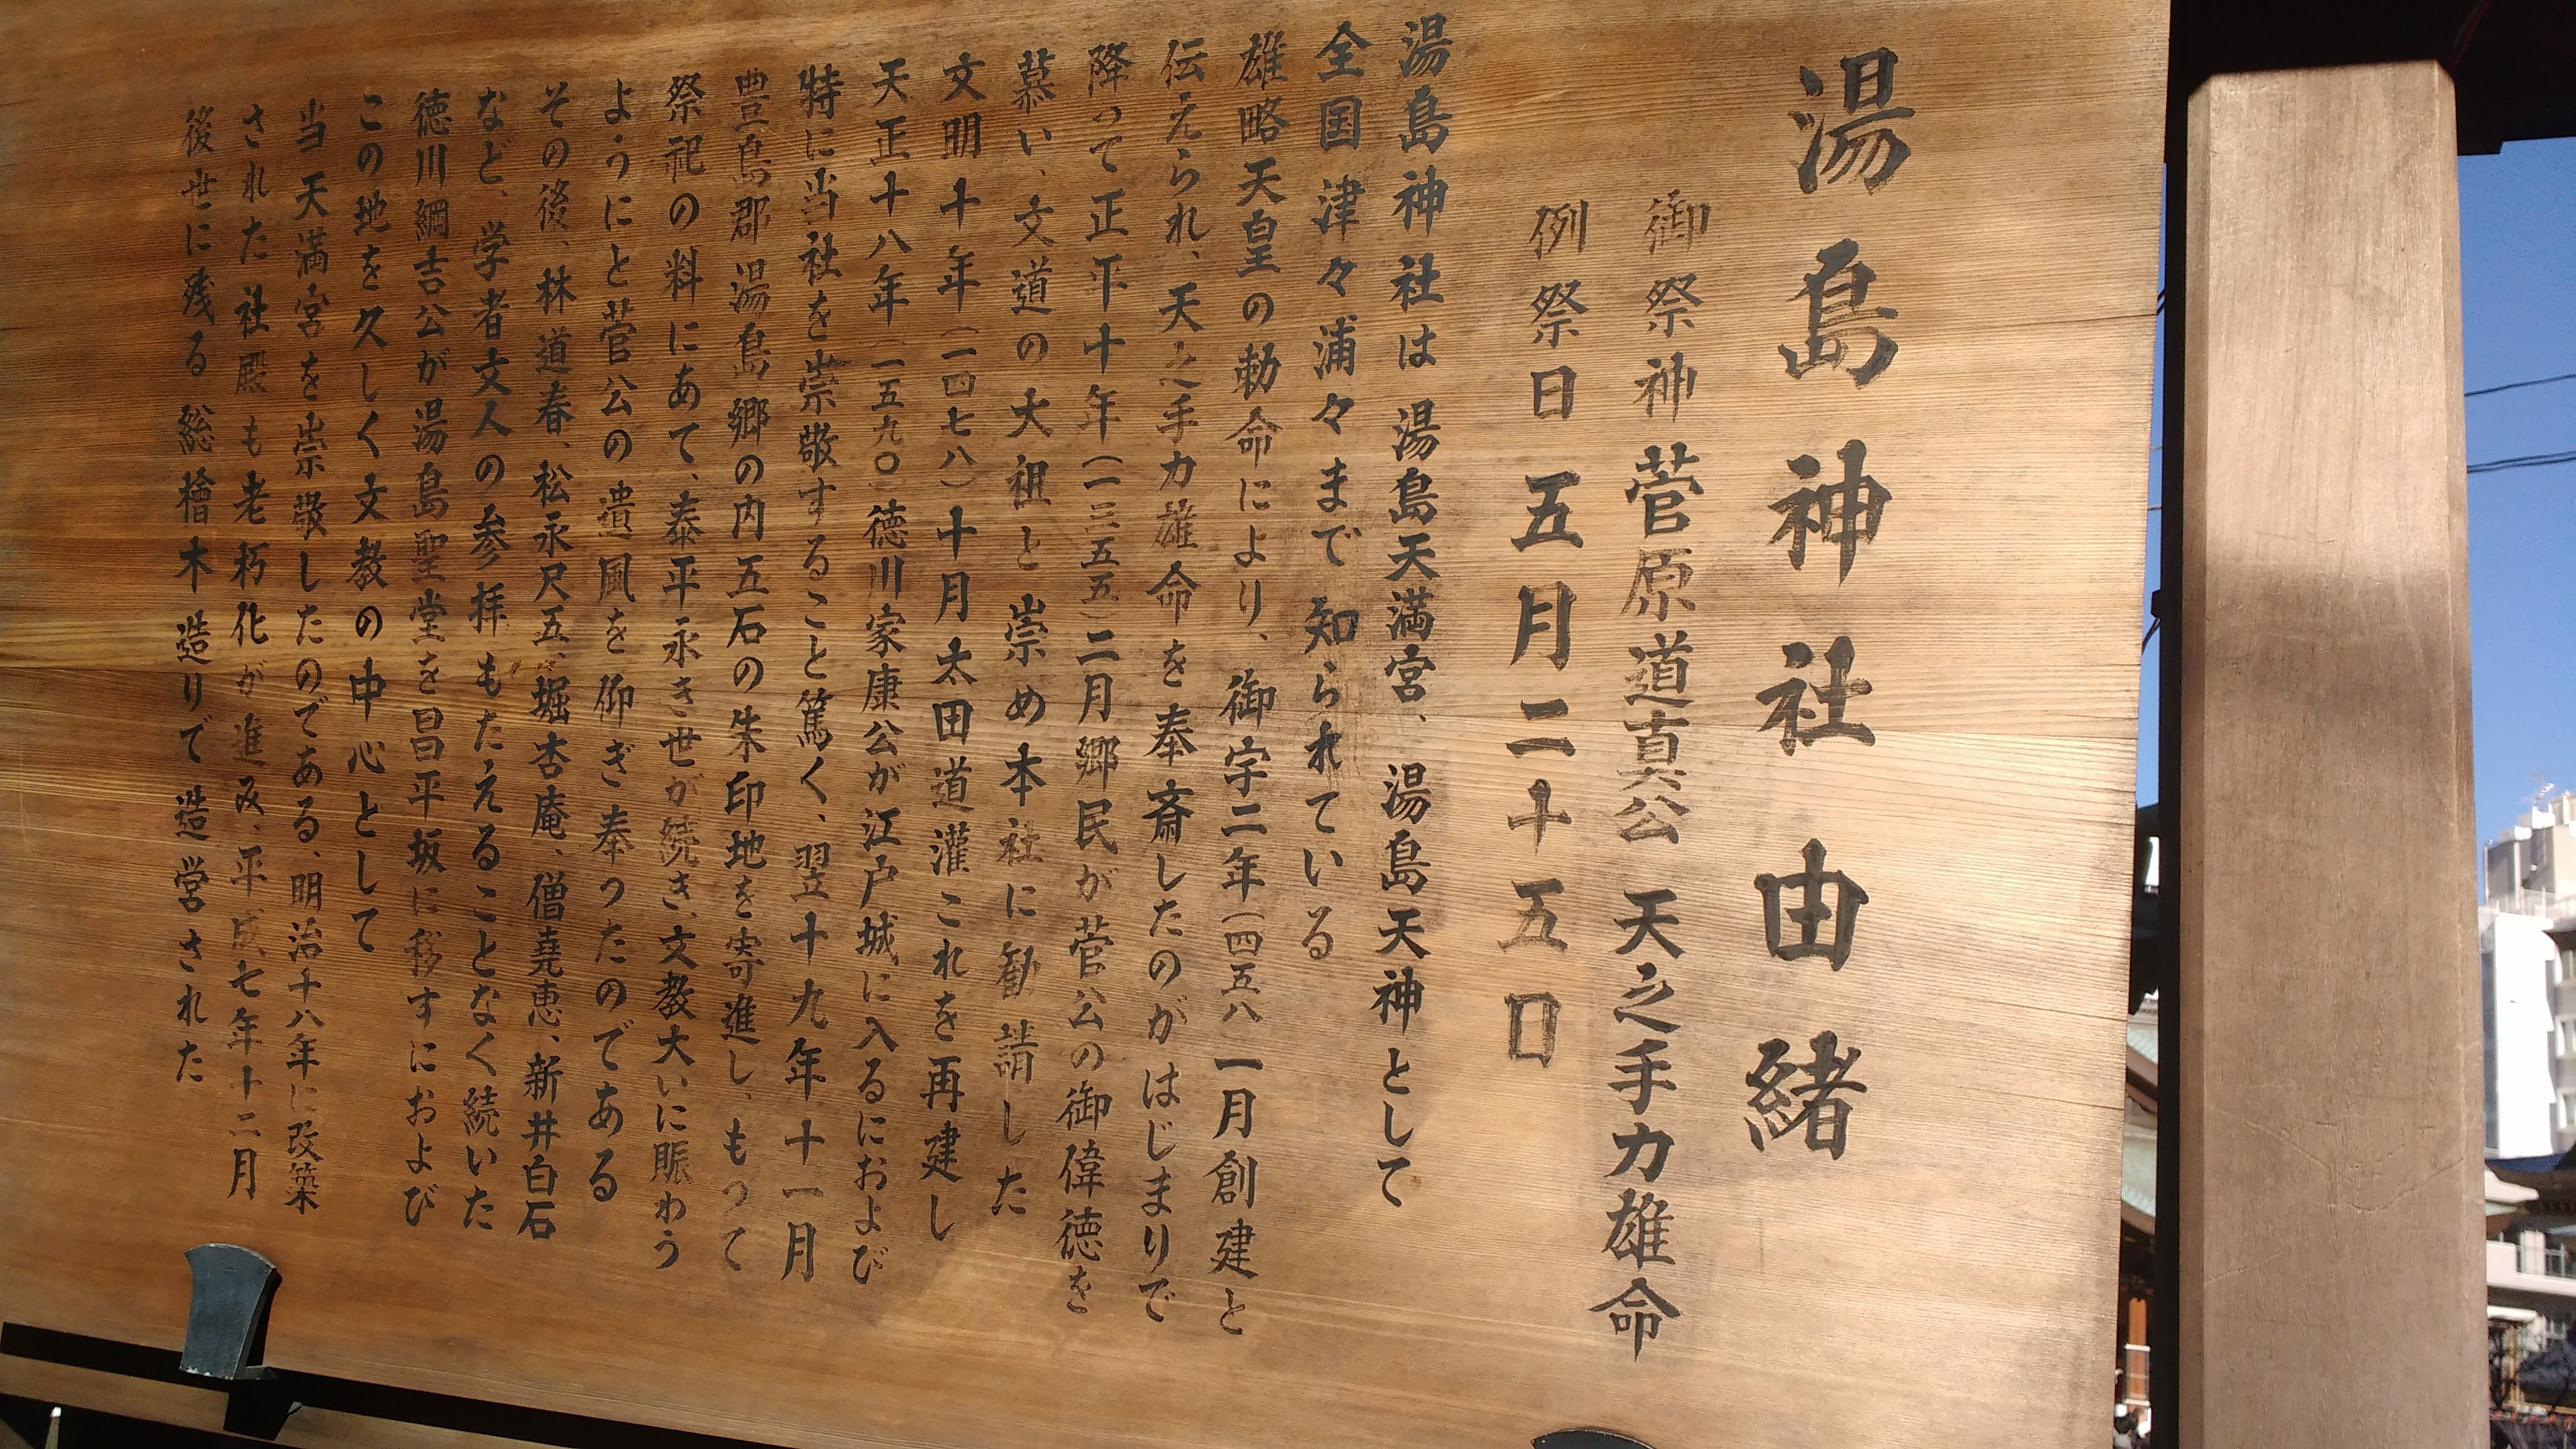 湯島神社由緒
御祭神 菅原道真公 天之手力雄命
例祭日 五月二十五日
湯島神社は 湯島天満宮、湯島天神として
全国津々浦々まで知られている
雄略天皇の勅命により、御宇二年(四五八)一月創建と
伝えられ、天之手力雄命を奉斎したのがはじまりで
降って正平十年(一三五五)二月郷民が菅公の御偉徳を
慕い、文道の大祖と崇め本社に勧請した
文明十年(一四七八)十月太田道灌これを再建し
天正十八年(一五九〇)徳川家康公が江戸城に入るにおよび
特に当社を崇敬すること篤く、翌十九年十一月
豊島郡湯島郷の内五石の朱印地を寄進し、もって
祭祀の料にあて、泰平永き世が続き、文教大いに賑わう
ようにと菅公の遺風を仰ぎ奉ったのである
その後、林道春、松永尺五、堀杏庵、僧堯恵、新井白石
など、学者文人の参拝もたえることなく続いた
徳川綱吉公が湯島聖堂を昌平坂に移すにおよび
この地を久しく文教の中心として
当天満宮を崇敬したのである、明治十八年に改築
された社殿も老朽化が進み、平成七年十二月
後世に残る総檜木造りで造営された